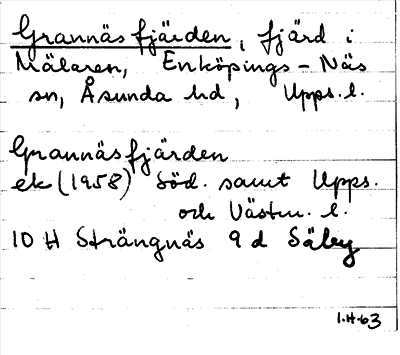 Grannäsfjärden, fjärd i
Mälaren, Enköpings-Näs
sn, Åsunda hd, Upps. l.
Grannäsfjärden
ek (1958) Söd. samt Upps.
och Västm. l.
10 H Strängnäs 9 d Säby
1.H.63